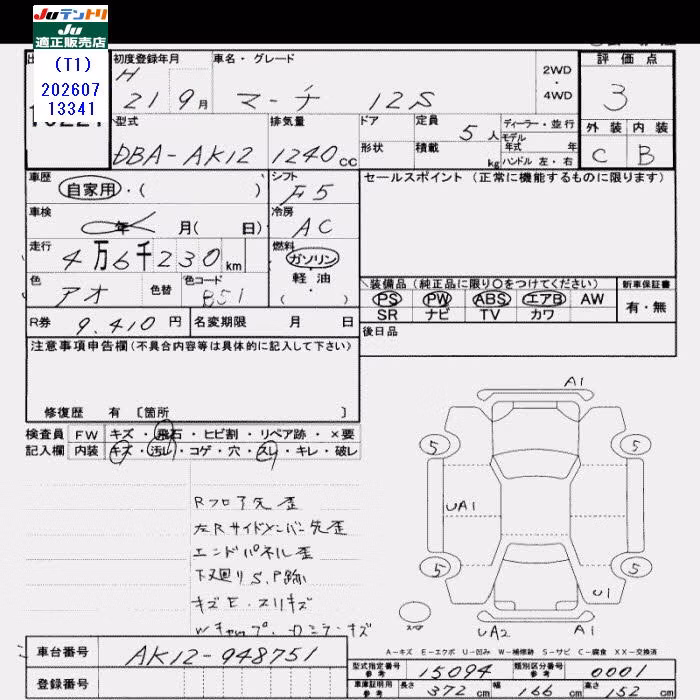 Juテントリ
Ju
適正販売店
(T1)
202607
13341
初度登録年月
H 21 9月
車名・グレード
マーチ 12S
2WD
・
4WD
評価点
3
外装 内装
C B
型式
DBA-AK12
排気量
1240cc
ドア
形状
定員 5人
積載 kg
ディーラー・並行
モデル
年式 年
ハンドル 左・右
車歴
自家用・( )
シフト
F5
車検
年 月( 日)
冷房
AC
走行
4万6千230km
燃料
ガソリン
軽油
( ・ )
色
アオ
色替
色コード
B51
R券 9.410円
名変期限 月 日
セールスポイント(正常に機能するものに限ります)
装備品(純正品に限り○をつけてください)
PS PW ABS エアB AW
SR ナビ TV カワ
新車保証書
有・無
後日品
注意事項申告欄(不具合内容等は具体的に記入して下さい)
修復歴 有 〔箇所 〕
検査員 FW キズ・飛石・ヒビ割・リペア跡・×要
記入欄 内装 キズ・汚レ・コゲ・穴・スレ・キレ・破レ
Rフロア先歪
左Rサイドメンバー先歪
エンドパネル歪
下廻りS.P跡
キズE・スリキズ
A1
5 5
UA1
5 5
U1
スペア
UA2 A1
A-キズ E-エクボ U-凹み W-補修跡 S-サビ C-腐食 XX-交換済
車台番号 AK12-948751
登録番号
型式指定番号
参考 15094
類別区分番号
参考 0001
車庫証明用
参考 長さ 372cm 幅 166cm 高さ 152cm